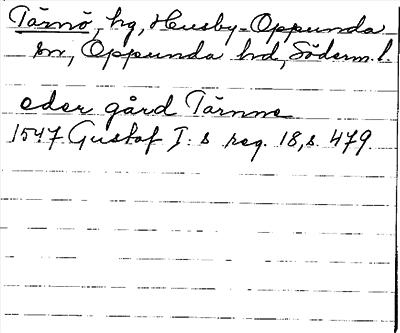 Tärnö, hg, Husby-Oppunda
sn, Oppunda hd, Söderm.l.
eder gård Tärnne
1547 Gustaf I:s reg. 18, s. 479.